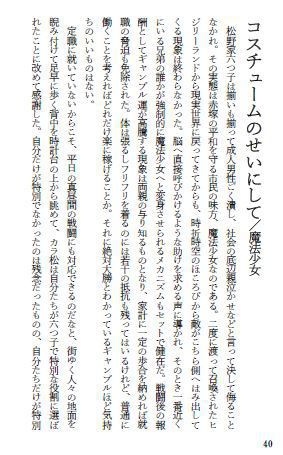 コスチュームのせいにして／魔法少女
　松野家六つ子は揃いも揃って成人男性ごく潰し、社会の底辺親泣かせなどと言って決して侮ること
なかれ。その実態は赤塚の平和を守る市民の味方、魔法少女なのである。二度に渡って召喚されたヒ
ジリーランドから現実世界に戻ってきてからも、時折時空のほころびから敵がこちら側へはみ出して
くる現象は終わらなかった。脳へ直接呼びかけるような助けを求める声に導かれ、そのとき一番近く
にいる兄弟の誰かが強制的に魔法少女へと変身させられるメカニズムもセットで健在だ。戦闘後の報
酬としてギャンブル運が高騰する現象は両親の与り知るものとなり、家計に一定の歩合を納めれば就
職の脅迫も免除された。体は張るしフリフリを着るのには若干の抵抗も残ってはいるけれど、普通に
働くことを考えればどれだけ楽に稼げることか。それに絶対大勝とわかっているギャンブルほど気持
ちのいいものはない。
　定職に就いていないからこそ、平日の真昼間の戦闘にも対応できるのだなと、街ゆく人々の地面を
睨み付けて足早に歩く背中を時計台の上から眺めて、カラ松は自分たちが六つ子で特別な役割に選ば
れたことに改めて感謝した。自分だけが特別でなかったのは残念だったものの、自分たちだけが特別
40